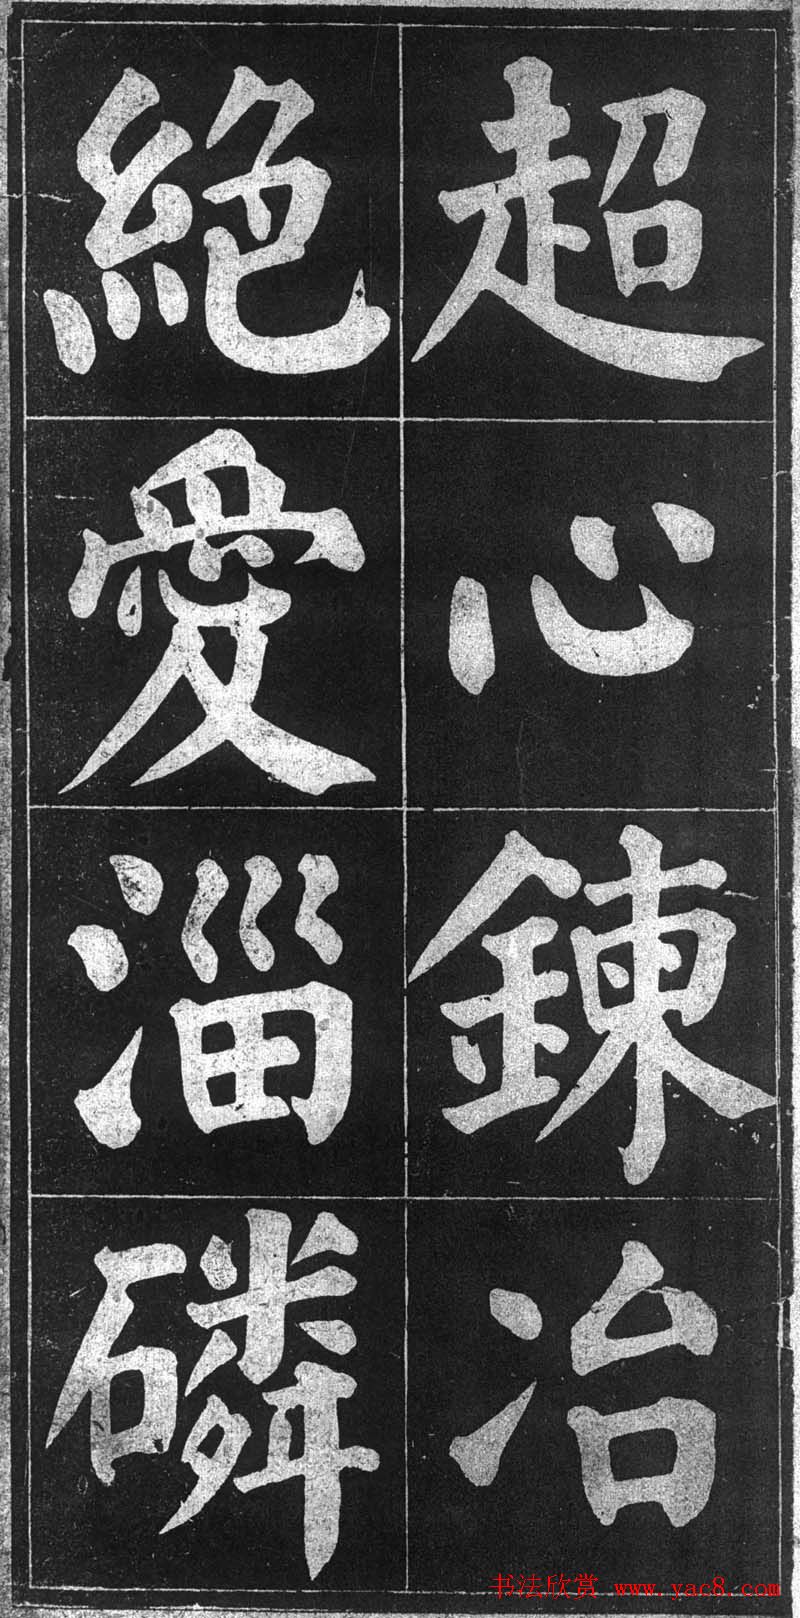 超心鍊冶
絶愛淄磷
书法欣赏 www.yac8.com